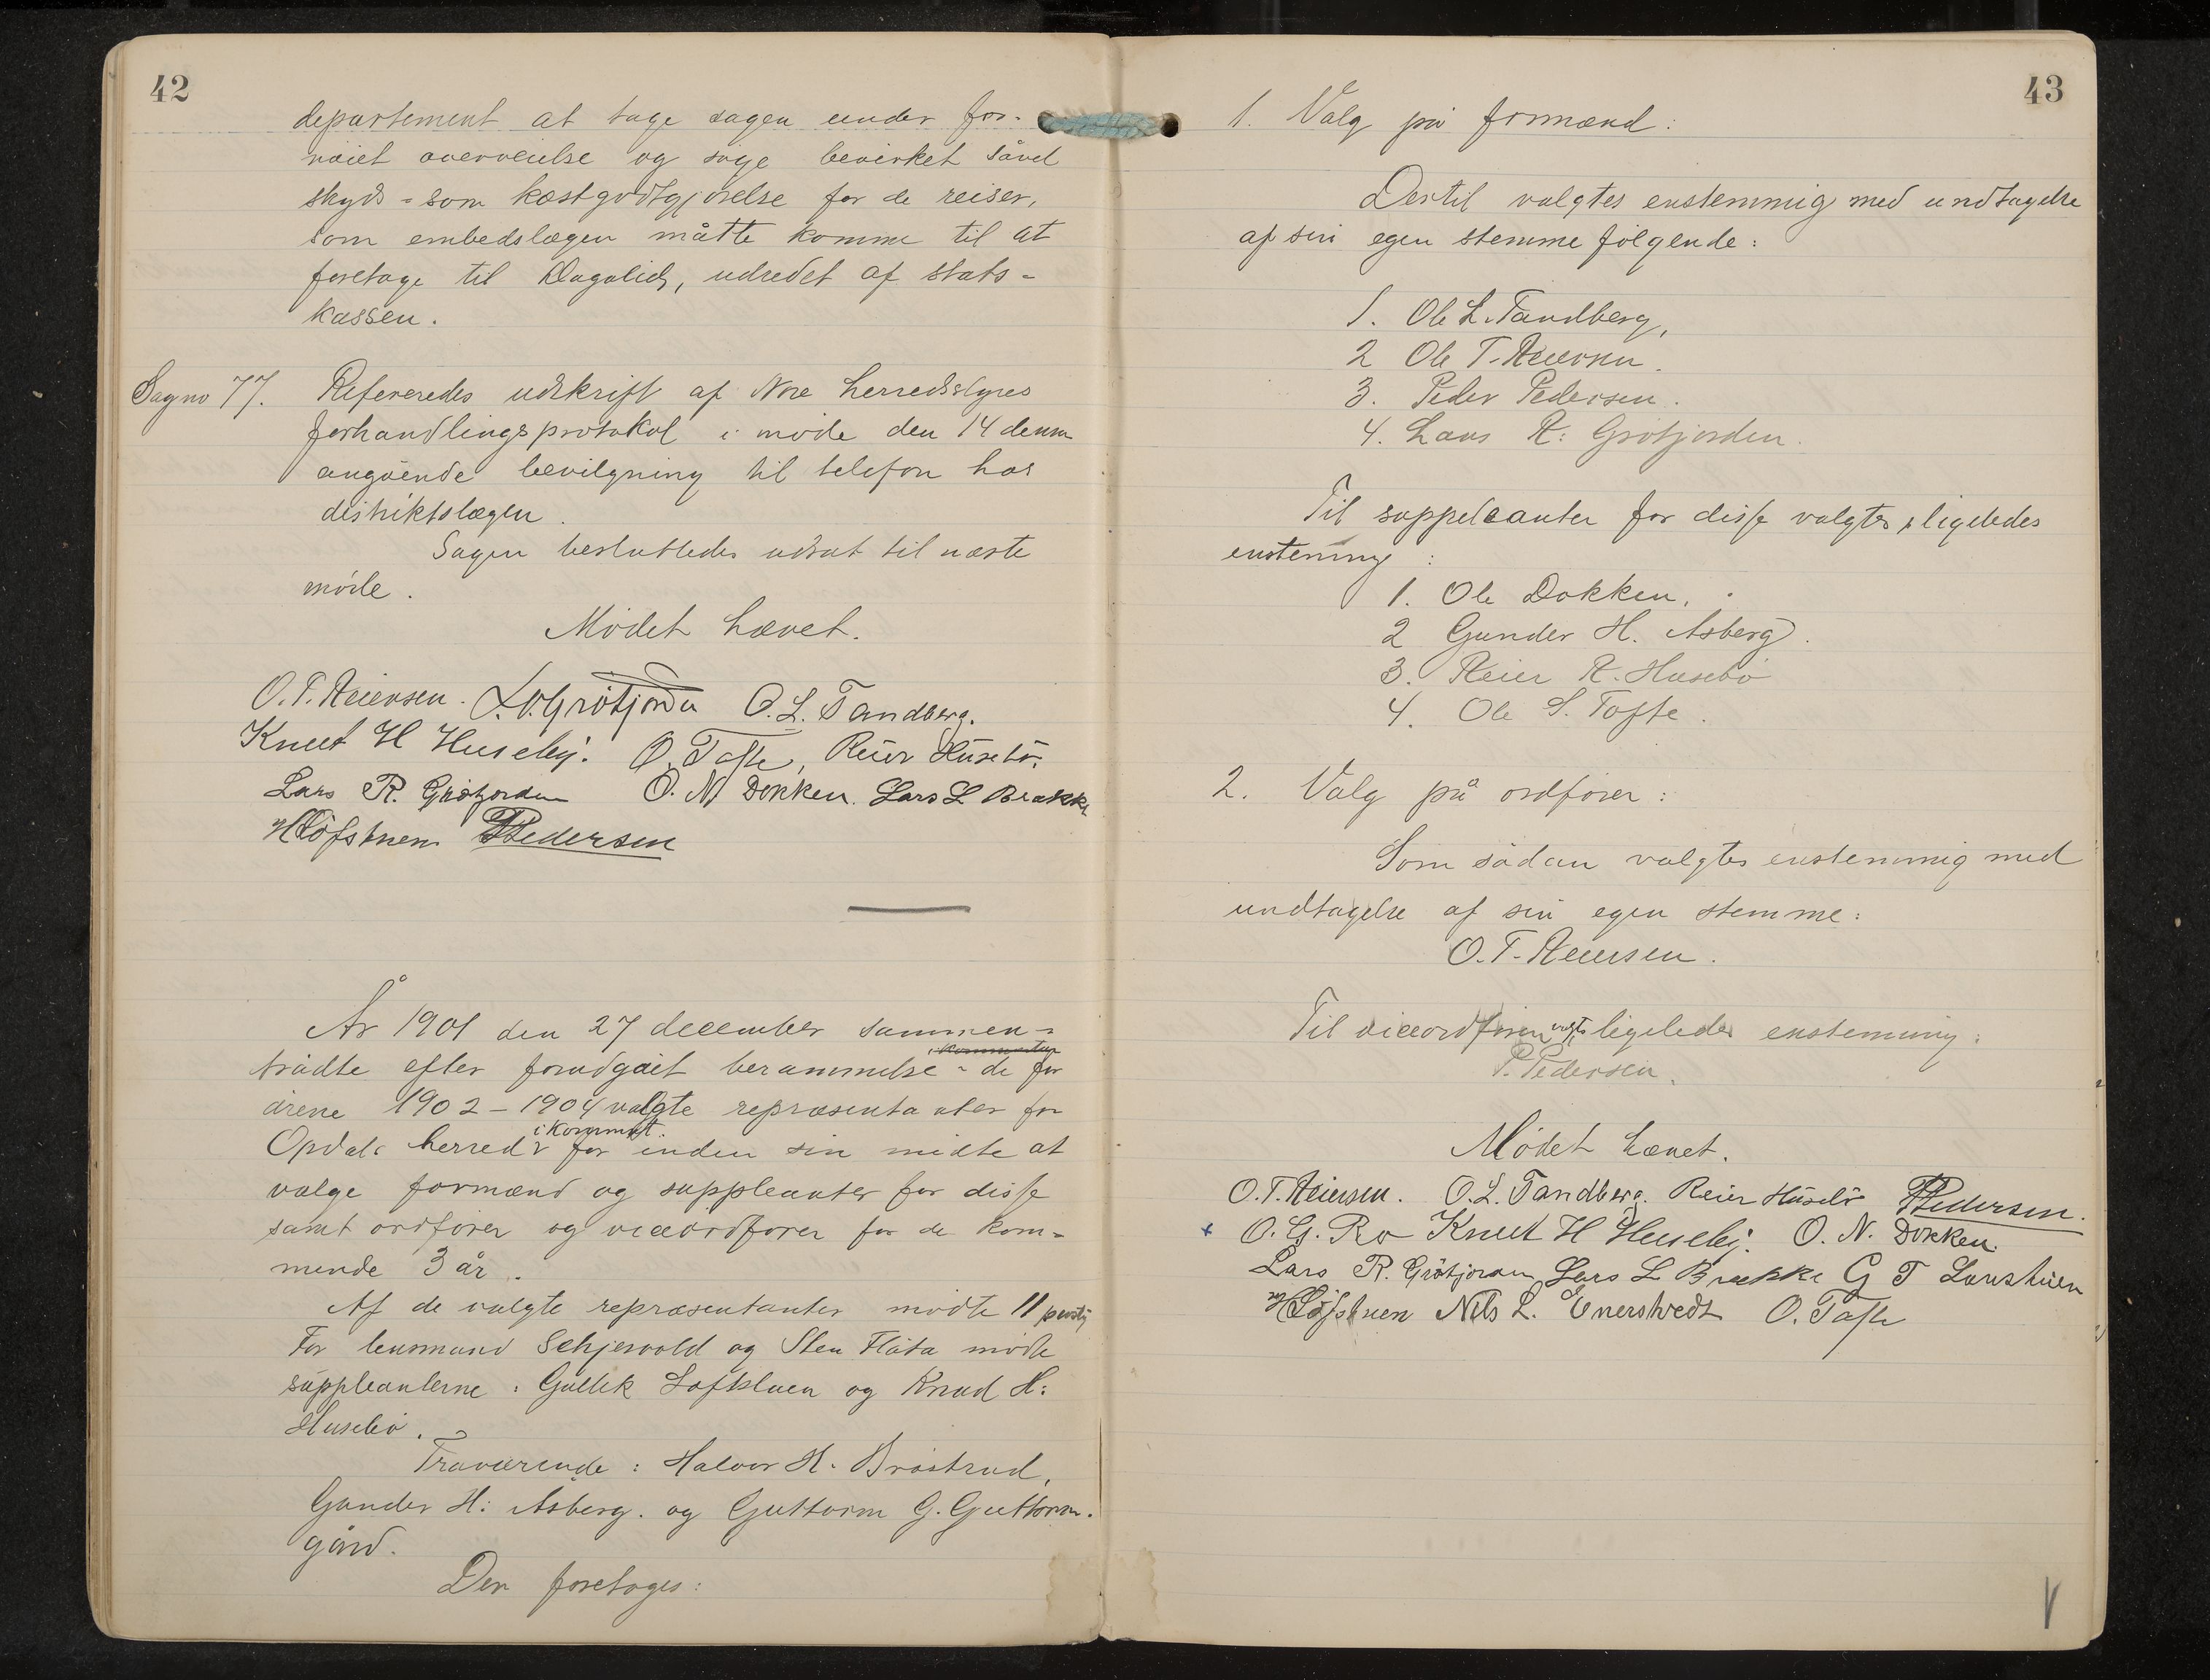 42
departement at tage sagen under for-
nøiet overveielse og søge bevirket såvel
skyds- som kostgodtgjørelse for de reiser,
som embedslægen måtte komme til at
foretage til Dagalid, udredet af stats-
kassen.
Sagno 77. Refereredes udskrift af Nore herredsstyres
forhandlingsprotokol i møde den 14 dennes
angående bevilgning til telefon hos
distriktslægen.
Sagen besluttedes udsat til næste
møde.
Mødet hævet.
O. T. Reiersen. Grøtjorden O. L. Tandberg.
Knut H Huseby. O. Tofte, Reier Husebø.
Lars R. Grøtjorden O. N. Dokken. Lars L Brække
PPedersen
År 1901 den 27 december sammen-
trådte efter forudgået berammelse - de for
årene 1902-1904 valgte repræsentanter for
i kommunest.
Opdals herred for inden sin midte at
vælge formænd og suppleanter for disse
samt ordfører og viceordfører for de kom-
mende 3 år.
Af de valgte repræsentanter mødte 11
For lensmand Schjervold og Sten Flåta mødte
suppleanterne: Gullik Loftstuen og Knud H.
Husebø.
Fraværende: Halvor H. Brøstrud,
Gunder H. Åsberg. og Guttorm G. Guttorm-
gård.
Der foretoges:
43
1. Valg på formænd:
Dertil valgtes enstemmig med undtagelse
af sin egen stemme følgende:
1. Ole L. Tandberg,
2 Ole T. Reiersen.
3. Peder Pedersen.
4. Lars R. Grøtjorden.
Til suppleanter for disse valgtes, ligeledes
enstemmig:
1. Ole Dokken.
2 Gunder H. Åsberg.
3. Reier R. Husebø
4. Ole S. Tofte.
2. Valg på ordfører:
Som sådan valgtes enstemmig med
undtagelse af sin egen stemme:
O. T. Reiersen.
Til viceordfører valgtes ligeledes enstemmig:
P. Pedersen.
Mødet hævet.
O. T. Reiersen. O. L. Tandberg. Reier Husebø PPedersen.
x O. G. Ro Knut H Huseby. O. N. Dokken.
Lars R. Grøtjorden Lars L Brække G T
Nils L. Enerstvedt O. Tofte